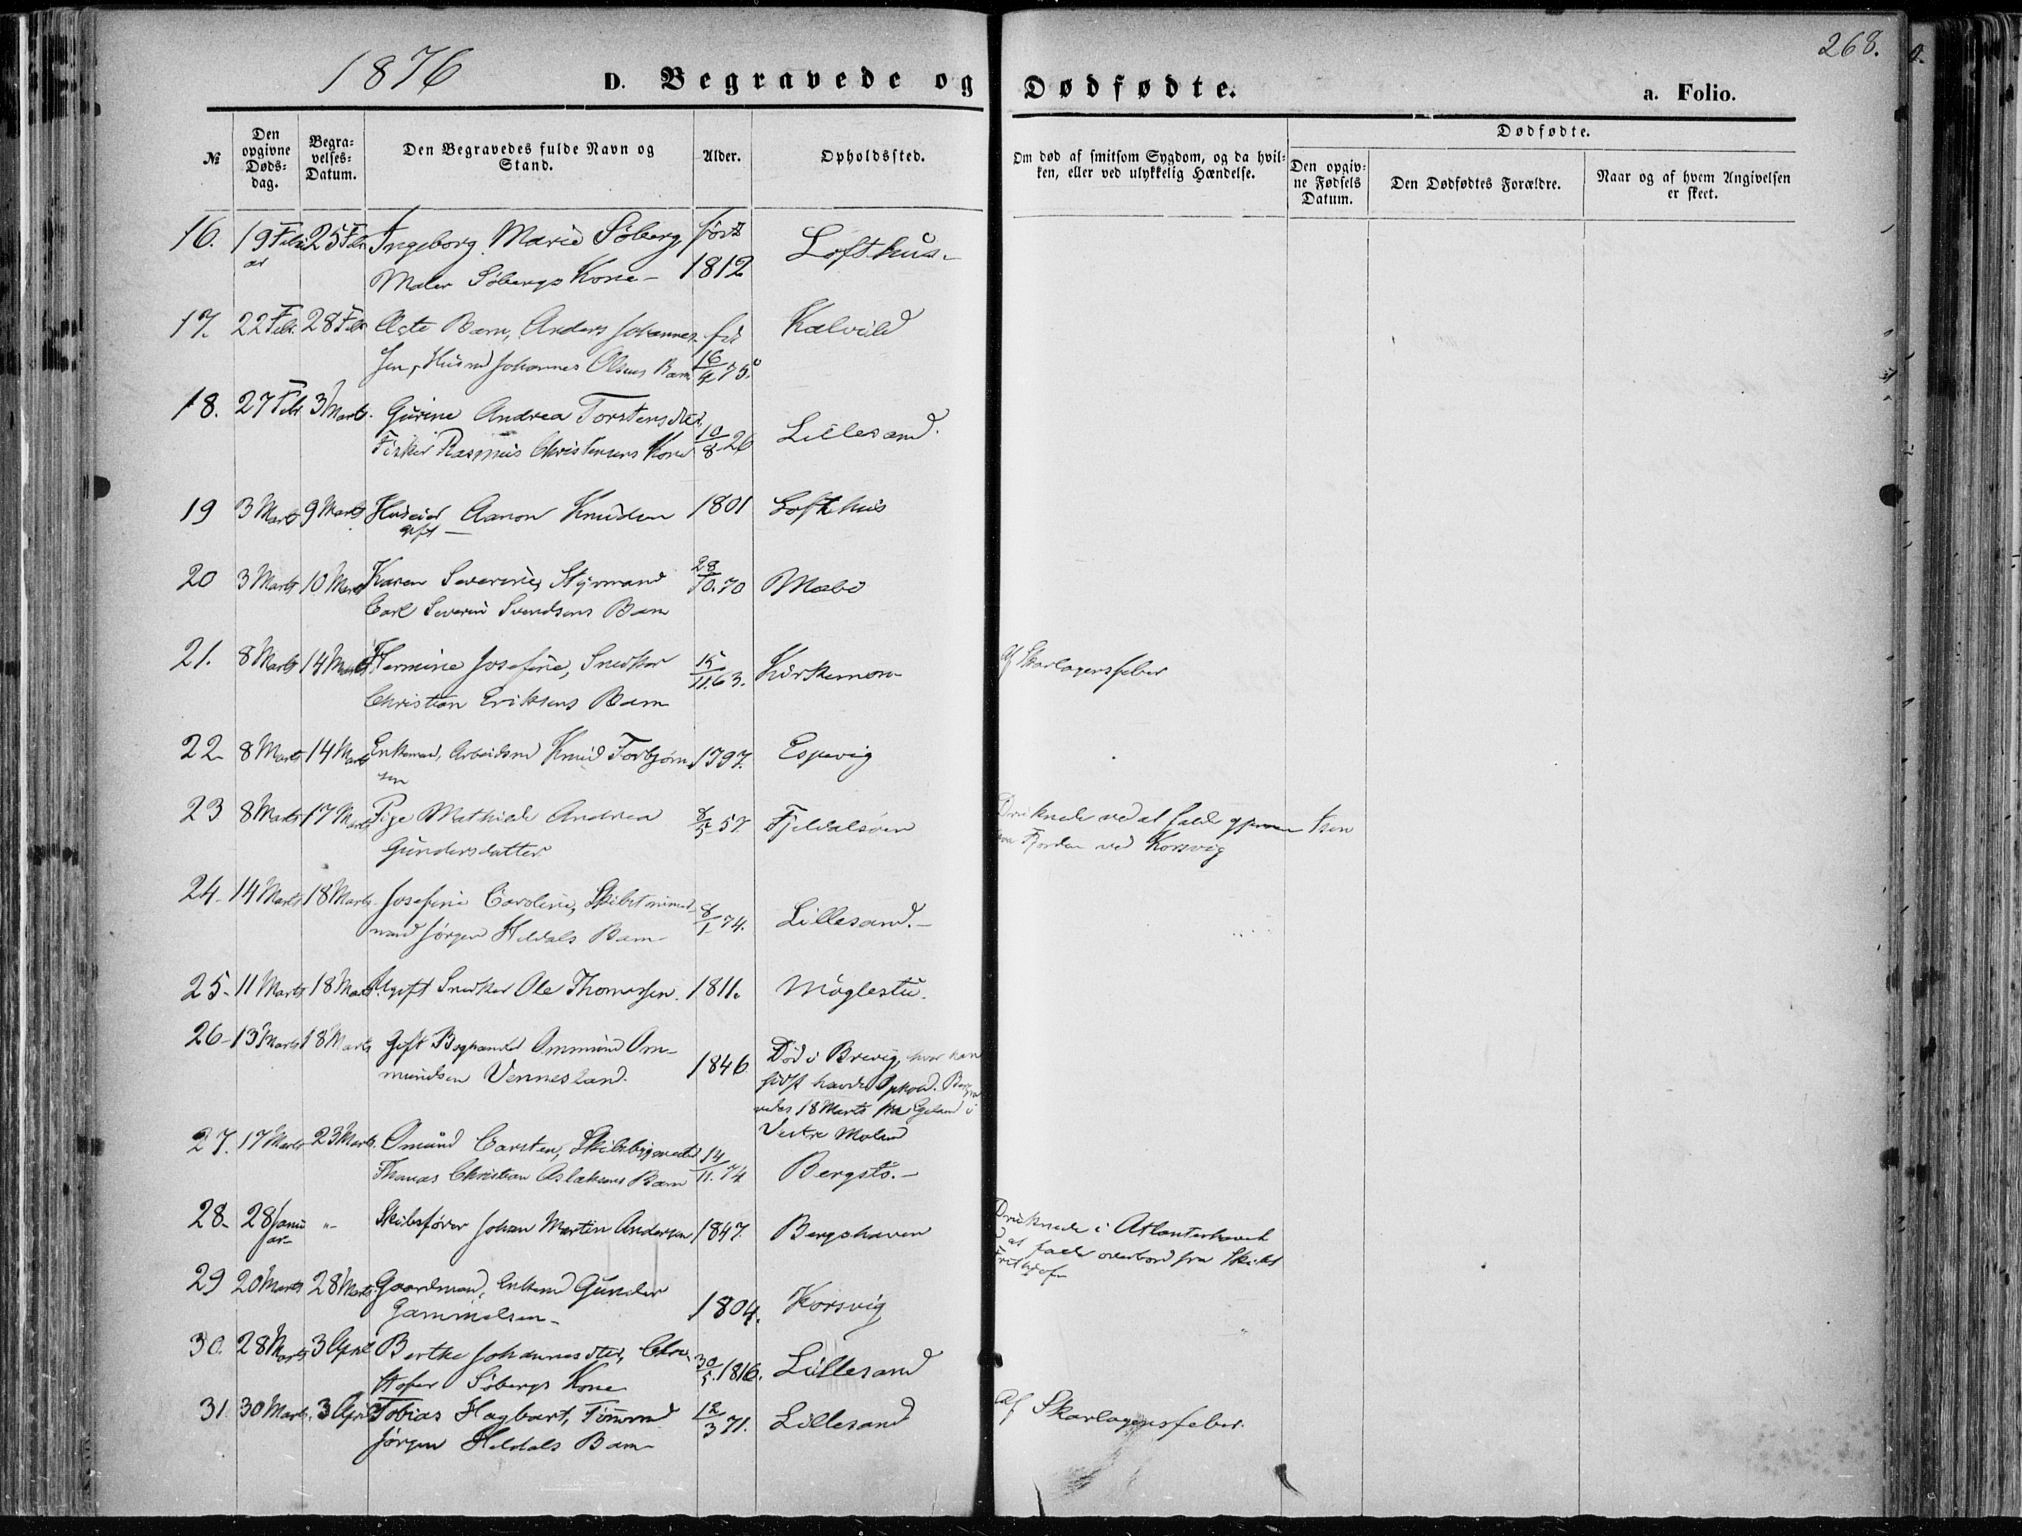 1876
268.
D. Begravede og Dødfødte.
a. Folio.
№
Den opgivne Døds-dag.
Begra-velses-Datum.
Den Begravedes fulde Navn og Stand.
Alder.
Opholdssted.
Om død af smitsom Sygdom, og da hvil-ken, eller ved ulykkelig Hændelse.
Dødfødte.
Den opgiv-ne Fødsels Datum.
Den Dødfødtes Forældre.
Naar og af hvem Angivelsen er skeet.
16. 19 Febru 25 Febr Ingeborg Marie Søberg, født Lofthus
ar Maler Søbergs Kone 1812
17. 22 Febr. 28 Febr Ægte Barn, Anders Johannes- Kalvild
sen, Husmd Johannes Olsens Barn 75.
18. 27 Febr 3 Marts. Gurine Andrea Torstensdtr. Lillesand.
Fisker Rasmus Christensens Kone 10/8 26
19 3 Marts 9 Marts Huseier Aanon Knudsen 1801 Lofthus
gift
20 3 Marts 10 Marts Karen Severine, Styrmand 28/10.70 Mæbø
Carl Severin Svendsens Barn
21. 8 Marts 14 Marts Hermine Josefine, Snedker 15/11.63. Kirkemoen Af Skarlagensfeber
Christian Eriksens Barn
22 8 Marts 14 Marts Enkemd, Arbeidsmd Knud Torbjørn 1797. Espevig
sen
23 8 Marts 17 Marts Pige Mathilde Andrea 8/5 57. Fjeldalsøen Druknede ved at falde gjennem Isen
Gundersdatter Fjorden ved Korsvig
24 14 Marts 18 Marts Josefine Caroline, Skibstømmer-
mand Jørgen Heldals Barn 8/1 74. Lillesand.
25 11 Marts 18 Marts Ugift Snedker Ole Thomassen. 1811. Møglestu.
26 13 Marts 18 Marts Gift Boghandl Ommund Om- Død i Brevig, hvor han
mundsen Vennesland. 1846. sidst havde Ophold. Begra
vedes 18 Marts paa Egeland i
Vestre Moland
27. 17 Marts 23 Marts. Omund Carsten, Skibsbygmester 14/11.74 Bergstø.
Thomas Christian Aslaksens Barn
28 28 Janu " Skibsfører Johan Martin Andersen 1847. Bergshaven Druknede i Atlanterhavet
ar at falde overbord fra Skibet
Frithjof
29 20 Marts 28 Marts. Gaardmand, Enkemd Gunder
Gammelsen 1804. Korsvig
30. 28 Marts 3 April Berthe Johannesdtr, Chri
stofer Søbergs Kone 30/5.1816. Lillesand
31. 30 Marts 3 April Tobias Hagbart, Tømmd 12/3 71. Lillesand Af Skarlagensfeber.
Jørgen Heldals Barn